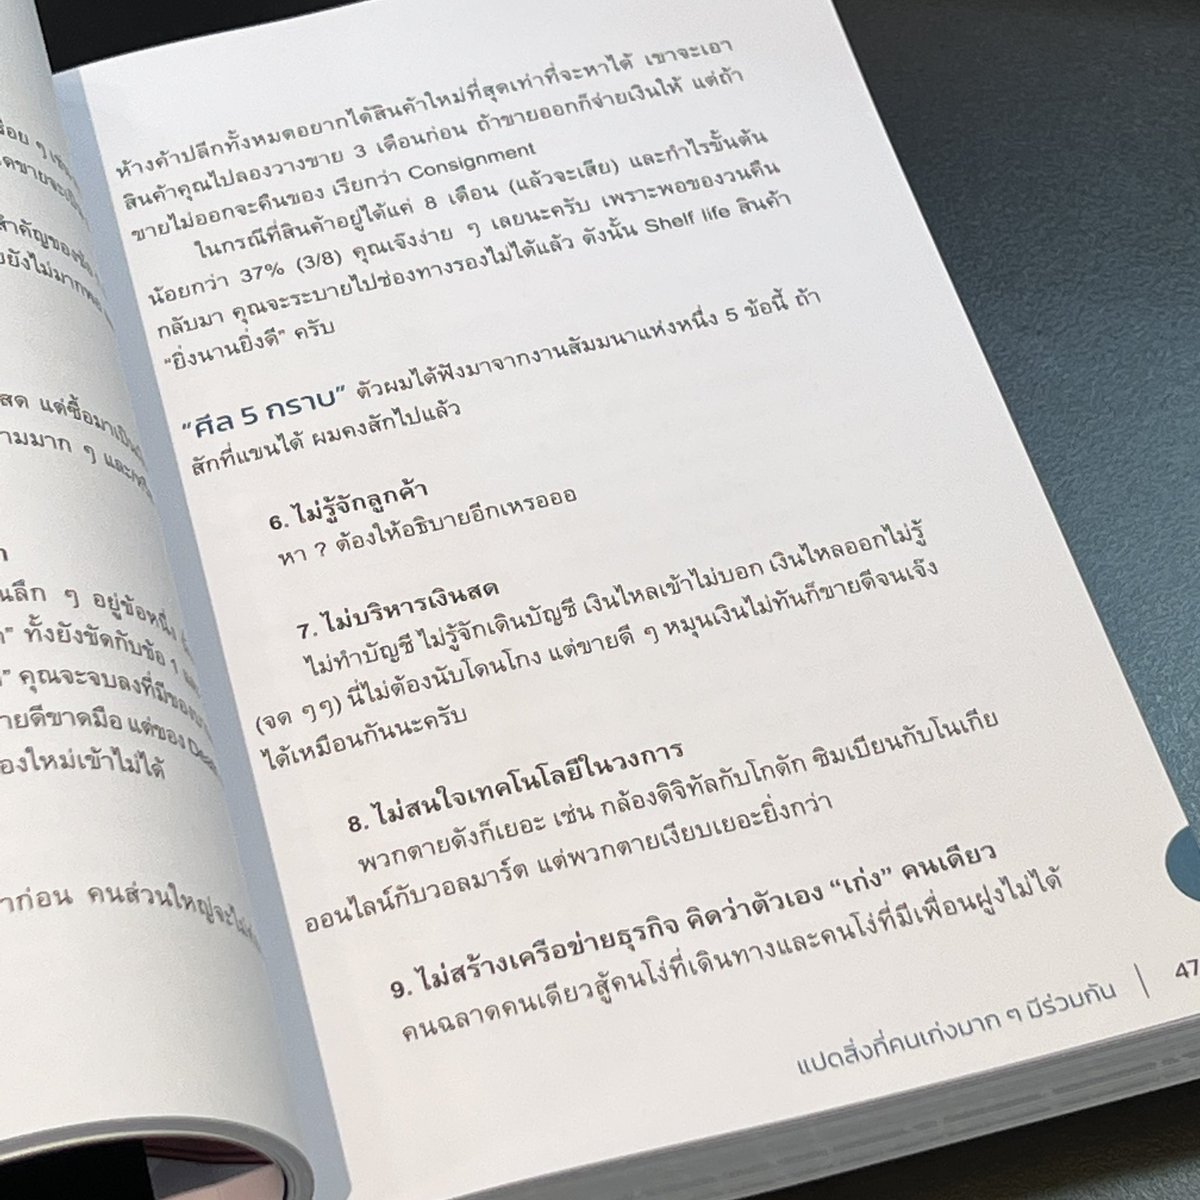 ื่อย ๆ เช่น
สำคัญของข้อ
ยยังไม่มาก
สด แต่ซื้อมาเป็น
ามมาก ๆ และ
นลึก ๆ อยู่ข้อหนึ่ง
ทั้งยังขัดกับข้อ 1
คุณจะจบลงที่มีของ
ายดีขาดมือ แต่ของ
องใหม่เข้าไม่ได้
าก่อน คนส่วนใหญ่จะ
ห้างค้าปลีกทั้งหมดอยากได้สินค้าใหม่ที่สุดเท่าที่จะหาได้ เขาจะเอา
สินค้าคุณไปลองวางขาย 3 เดือนก่อน ถ้าขายออกก็จ่ายเงินให้ แต่ถ้า
ขายไม่ออกจะคืนของ เรียกว่า Consignment
ในกรณีที่สินค้าอยู่ได้แค่ 8 เดือน (แล้วจะเสีย) และกำไรขั้นต้น
น้อยกว่า 37% (3/8) คุณเจ๊งง่าย ๆ เลยนะครับ เพราะพอของวนคืน
กลับมา คุณจะระบายไปช่องทางรองไม่ได้แล้ว ดังนั้น Shelf life สินค้า
“ยิ่งนานยิ่งดี” ครับ
“ศีล 5 กราบ” ตัวผมได้ฟังมาจากงานสัมมนาแห่งหนึ่ง 5 ข้อนี้ ถ้า
สักที่แขนได้ ผมคงสักไปแล้ว
6. ไม่รู้จักลูกค้า
หา ? ต้องให้อธิบายอีกเหรอออ
7. ไม่บริหารเงินสด
ไม่ทำบัญชี ไม่รู้จักเดินบัญชี เงินไหลเข้าไม่บอก เงินไหลออกไม่รู้
(จด ๆๆ) นี่ไม่ต้องนับโดนโกง แต่ขายดี ๆ หมุนเงินไม่ทันก็ขายดีจนเจ๊ง
ได้เหมือนกันนะครับ
8. ไม่สนใจเทคโนโลยีในวงการ
พวกตายดังก็เยอะ เช่น กล้องดิจิทัลกับโกดัก ซิมเบียนกับโนเกีย
ออนไลน์กับวอลมาร์ต แต่พวกตายเงียบเยอะยิ่งกว่า
9. ไม่สร้างเครือข่ายธุรกิจ คิดว่าตัวเอง “เก่ง” คนเดียว
คนฉลาดคนเดียวสู้คนโง่ที่เดินทางและคนโง่ที่มีเพื่อนฝูงไม่ได้
แปดสิ่งที่คนเก่งมาก ๆ มีร่วมกัน | 47